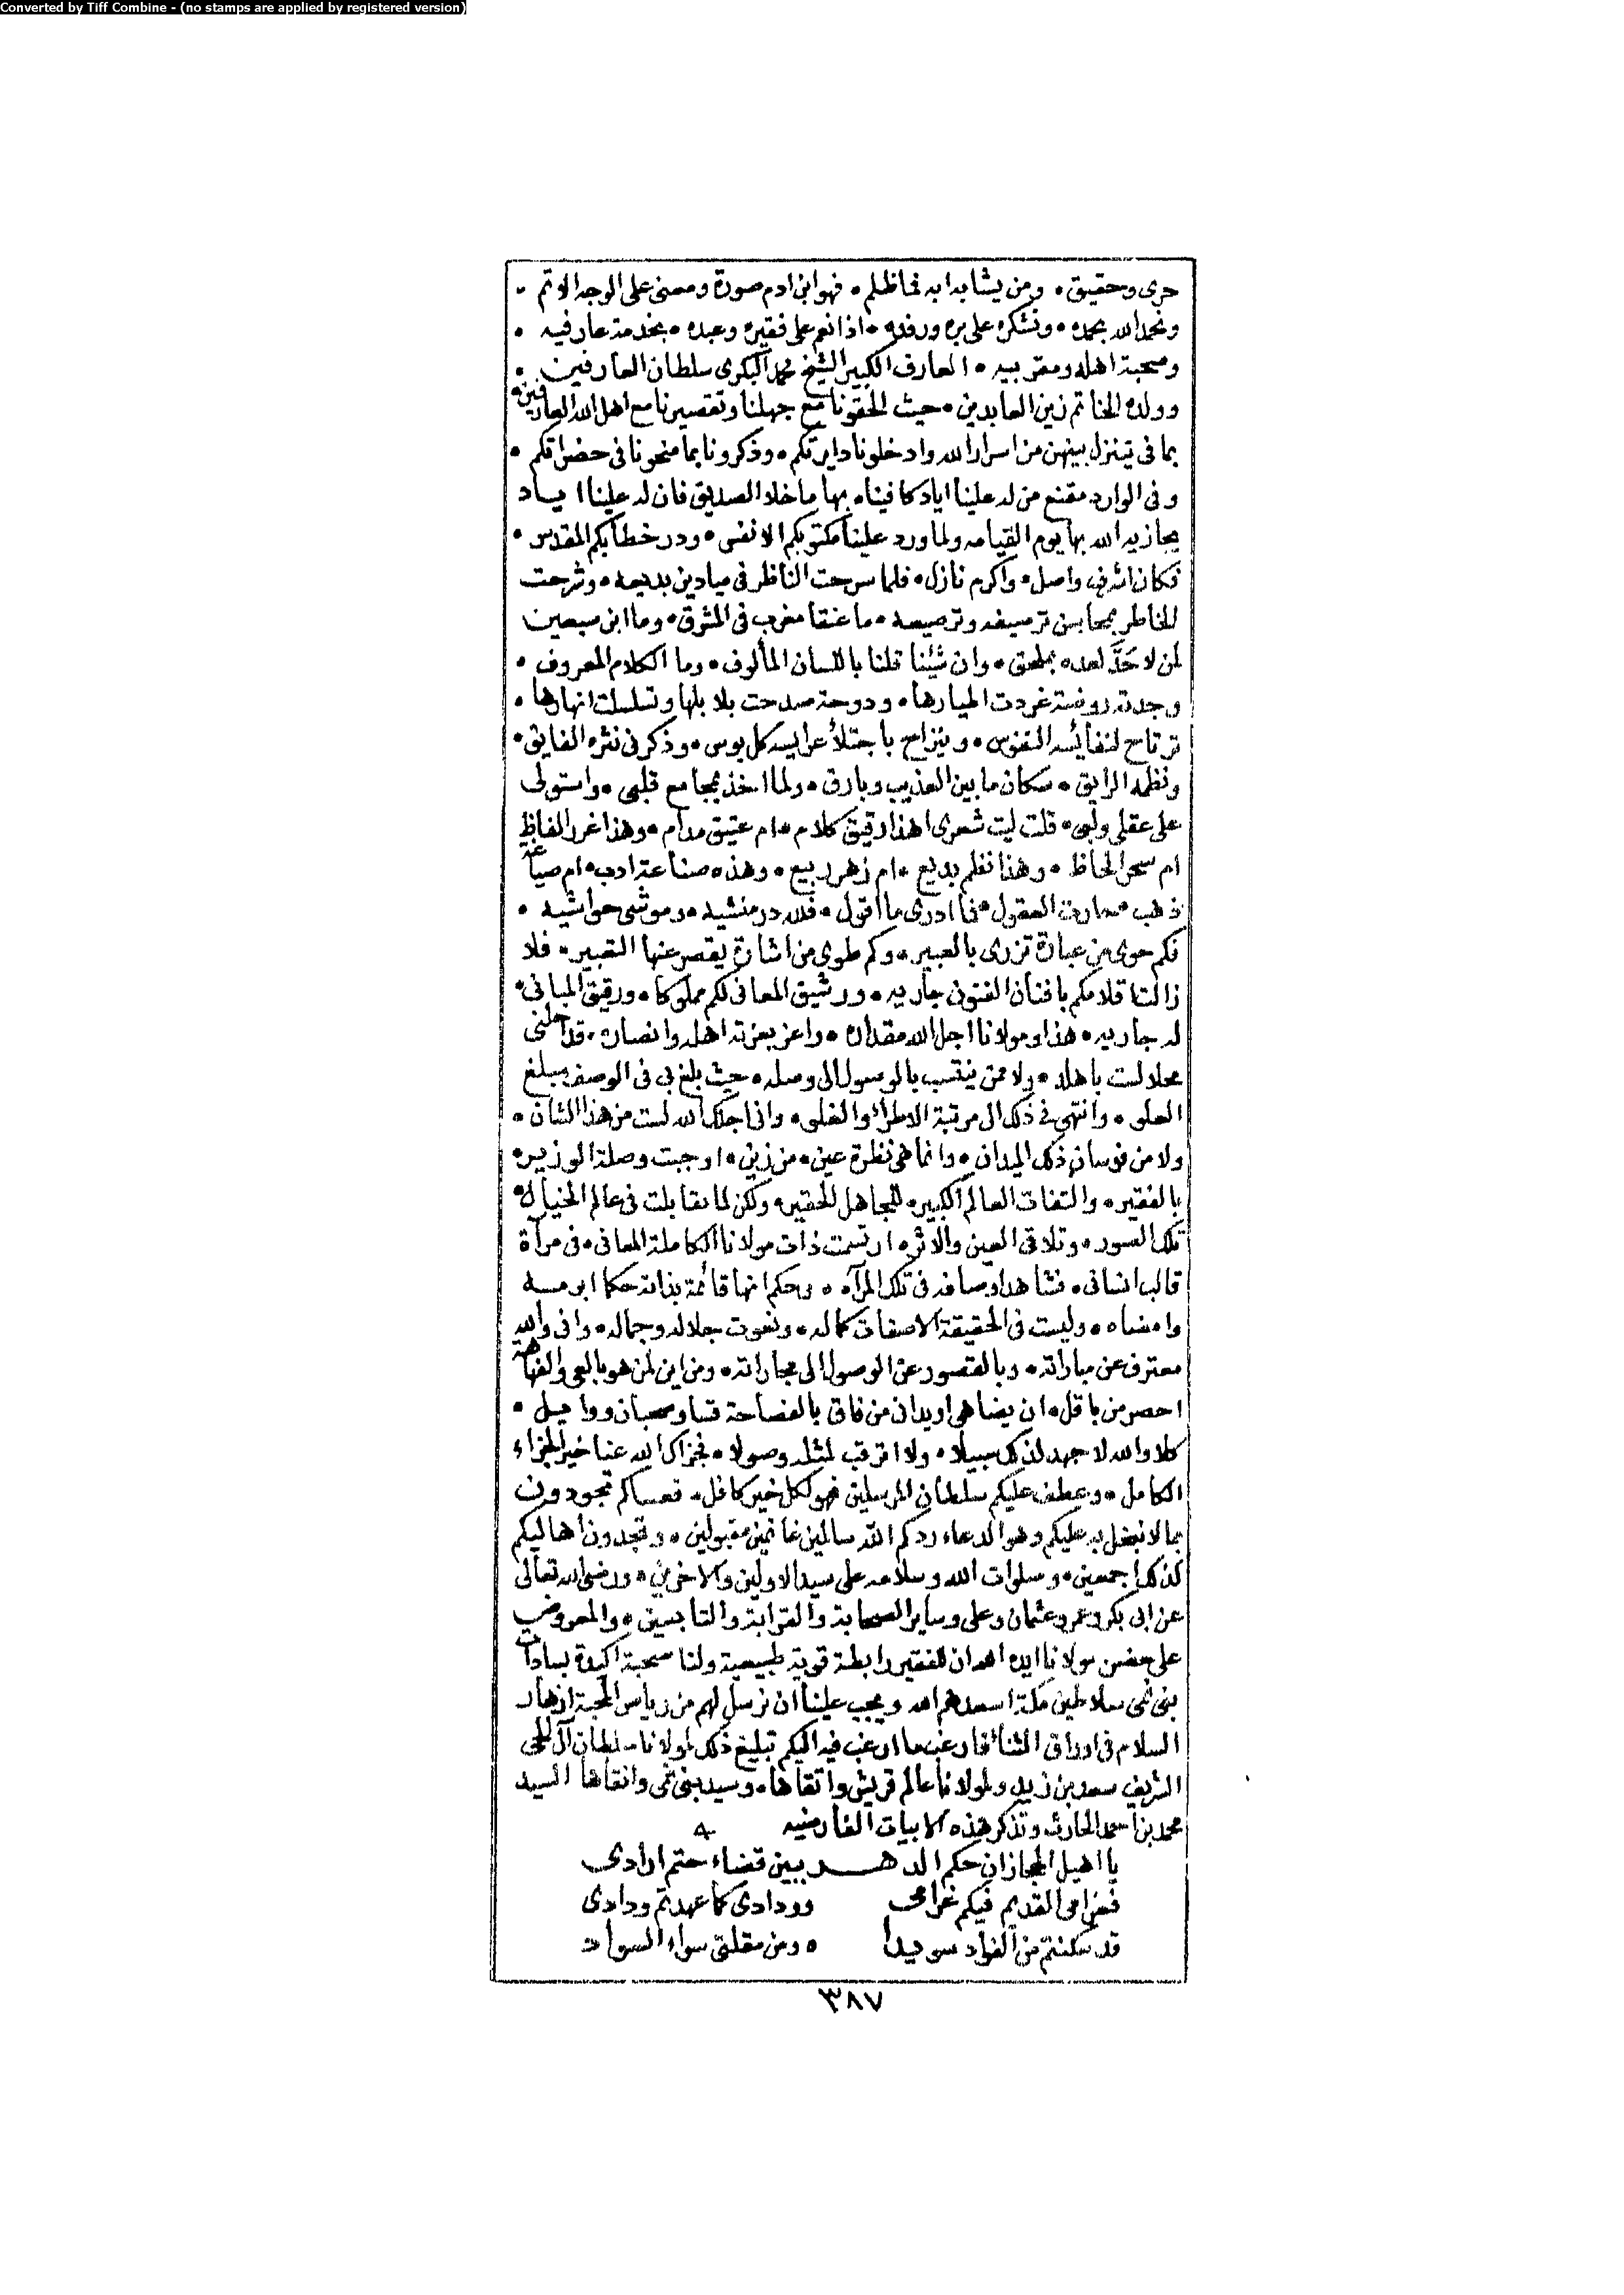 Converted by Tiff Combine - (no stamps are applied by registered version)
حرى وحقيق • ومن يشابه ابه فما ظلم • فهو ابن ادم صورة ومعنى على الوجه الاتم •
ونحمد الله بحمده • ونشكره على بره ورفده • اذ انعم على فقيره وعبده • بخدمة عارفيه •
وصحبة اهله ومقربيه • العارف الكبير الشيخ محمد البكرى سلطان العارفين •
وولده الخاتم زين العابدين • حيث الحقونا مع جهلنا وتقصيرنا مع اهل الله العارفين •
بما فى يتنزل بينهن من اسرار الله وادخلونا دايرتكم • وذكرونا بما منحونا فى حضراتكم •
وفى الوارد مقنع من له علينا اياد كافيناه بها ما خلا الصديق فان له علينا اياد
يجازيه الله بها يوم القيامه ولما ورد علينا مكتوبكم الانفس • ودر خطابكم المقدس •
فكان اشرف واصل • واكرم نازل • فلما سرحت الناظر فى ميادين بديعه • وشرحت
الخاطر بمحاسن ترصيفه وترصيعه • ما عنقا مغرب فى المشرق • وما ابن سبعين
لمن لا حَدَّ لعده بملحق • وان شئنا قلنا باللسان المألوف • وما الكلام المعروف •
وجدته روضة غردت اطيارها • ودوحة صدحت بلابلها وتسلسلت انهارها •
ترتاح لنفائسه النفوس • وينزاح باجتلأ عرايسه كل بوس • وذكر فى نثره الفايق •
ونظمه الرايق • سكان ما بين العذيب وبارق • ولما اخذ بمجامع قلبى • واستولى
على عقلى ولبى • قلت ليت شعرى اهذا رقيق كلام • ام عتيق مدام • وهذا غرر الفاظ
ام سحر الحاظ • وهذا نظم بديع • ام زهر ربيع • وهذه صناعة ادب • ام صياغة
ذهب • حارت العقول • فما ادرى ما اقول • فلله در منشيه • وموشى حواشيه •
فكم حوى من عبارة تزرى بالعبير • وكم طوى من اشارة يقصر عنها التعبير • فلا
زالت اقلامكم بافنان الفنون جاريه • ورشيق المعانى لكم مملوكا • ورقيق المبانى •
له جاريه • هذا ومولانا اجل الله مقداره • واعز بعزته اهله وانصاره • قد احلنى
محلا لست باهله • ولا ممن ينتسب بالوصول الى وصله • حيث بلغ بى فى الوصف مبلغ
العلو • وانتهى فى ذلك الى مرتبة الاطرأ والغلو • وانا اجلك الله لست من هذا الشان •
ولا من فرسان ذلك الميدان • وانما هى نظرة عين • من زين • اوجبت وصلة الوزير •
بالفقير • والتفات العالم الكبير • للجاهل الحقير • ولكن لما تقابلت فى عالم الخيال •
تلك الصور • وتلاقى العين والاثر • ارتسمت ذات مولانا الكاملة المعانى • فى مرآة
قالب انسانى • فشاهد اوصافه فى تلك المرآه • وحكم انها قائمة بذاته حكما ابرمه
وامضاه • وليست فى الحقيقة الا صفات كماله • ونعوت جلاله وجماله • وانى والله
معترف عن مباراته • وبالقصور عن الوصول الى مجاراته • ومن اين لمن هو بالعى والفهاهة
احصر من باقل • ان يضاهى او يدانى من فاق بالفصاحة قسا وسحبان ووايل •
كلا والله لا جهد لذلك سبيلا • ولا اترقب لمثله وصولا • فجزاك الله عنا خير الجزاء
الكامل • وعطف عليكم سلطان المرسلين فهو لكل خير كافل • فعساكم تجودون
بما لا نبخل به عليكم وهو الدعاء ردكم الله سالمين غانمين مقبولين • وتجدون اهاليكم
كذلك اجمعين • وصلوات الله وسلامه على سيد الاولين والاخرين • ورضى الله تعالى
عن ابى بكر وعمر وعثمان وعلى وساير الصحابة والقرابة والتابعين • والمعروض
على حضرت مولانا ايده الله ان للفقير رابطة قوية طبيعية ولنا صحبة اكيدة بسادات
بنى نمى سلاطين مكة اسعدهم الله ويجب علينا ان نرسل لهم من رياض المحبة ازهار
السلام فى اوراق الثنأ فارغب ما ارغب فيه اليكم تبليغ ذلك لمولانا سلطان آل
الشريف سعد بن زيد ولمولانا عالم قريش واتقاها • وسيد بنى نمى وانقاها السيد
محمد بن احمد الحارث وتذكر هذه الابيات الفارضيه
يا اهيل الحجاز ان حكم الدهـــر ببين قضاء حتم ارادى
فغرامى القديم فيكم غرامى    وودادى كما عهدتم ودادى
قد سكنتم من الفواد سويدا    • ومن مقلتى سواء السواد
٣٨٧